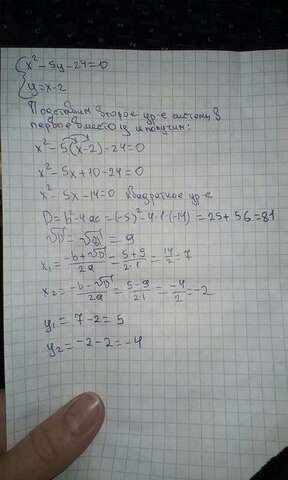 { x² - 5y - 24 = 0
y = x - 2
Подставим второе ур-е системы в
первое вместо y и получим:
x² - 5(x - 2) - 24 = 0
x² - 5x + 10 - 24 = 0
x² - 5x - 14 = 0 квадратное ур-е
D = b² - 4ac = (-5)² - 4·1·(-14) = 25 + 56 = 81
√D = √81 = 9
x₁ = (-b + √D)/2a = (5 + 9)/(2·1) = 14/2 = 7
x₂ = (-b - √D)/2a = (5 - 9)/(2·1) = -4/2 = -2
y₁ = 7 - 2 = 5
y₂ = -2 - 2 = -4